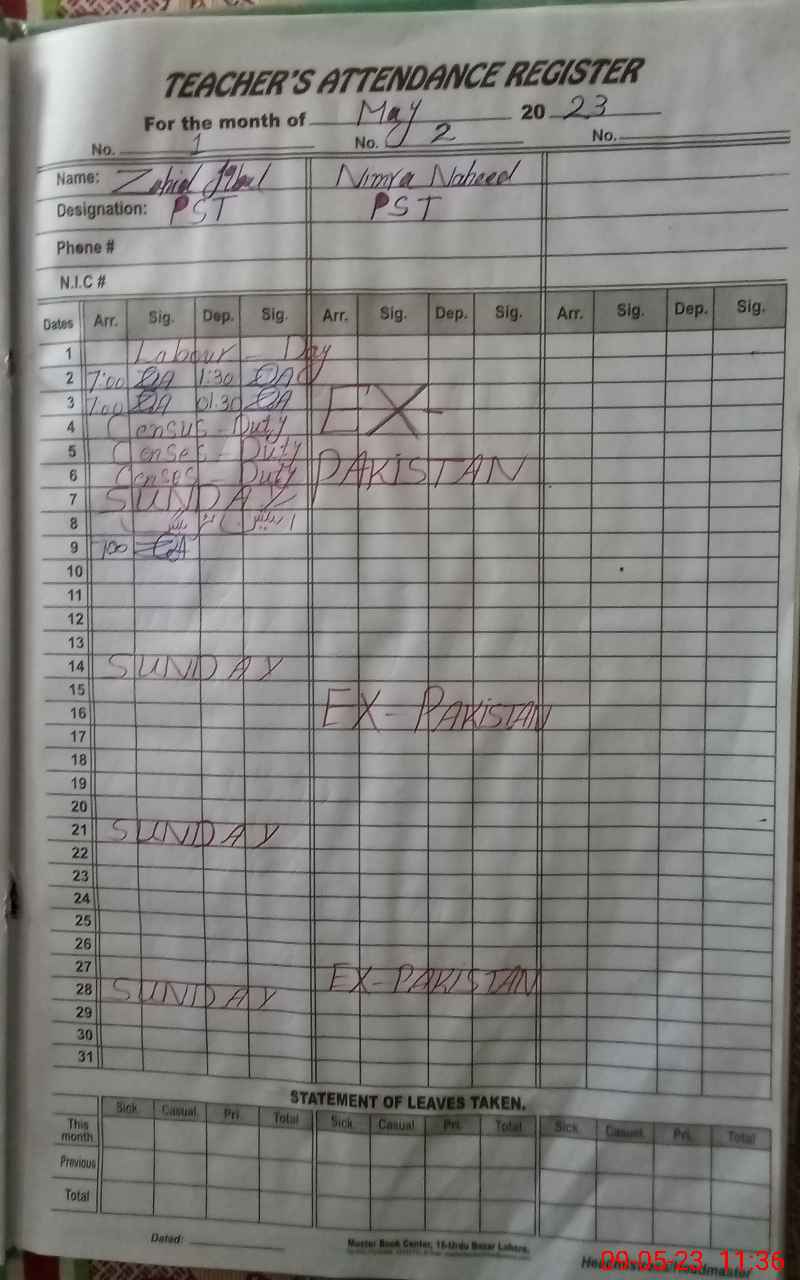 TEACHER'S ATTENDANCE REGISTER
For the month of May 2023
No. 1 No. 2 No.
Name: Zahid Iqbal Nimra Naheed
Designation: PST PST
Phone #
N.I.C #
Dates Arr. Sig. Dep. Sig. Arr. Sig. Dep. Sig. Arr. Sig. Dep. Sig.
1 Labour - Day
2 7:00 1:30
3 7:00 01:30 EX-
4 Census - Duty
5 Censes - Duty
6 Censes - Duty PAKISTAN
7 SUNDAY
8
9 700
10
11
12
13
14 SUNDAY
15
16 EX-PAKISTAN
17
18
19
20
21 SUNDAY
22
23
24
25
26
27 EX-PAKISTAN
28 SUNDAY
29
30
31
STATEMENT OF LEAVES TAKEN.
Sick Casual Pri. Total Sick Casual Pri. Total Sick Casual Pri. Total
This month
Previous
Total
Dated:
Master Book Center, 16-Urdu Bazar Lahore.
09.05.23 11:36